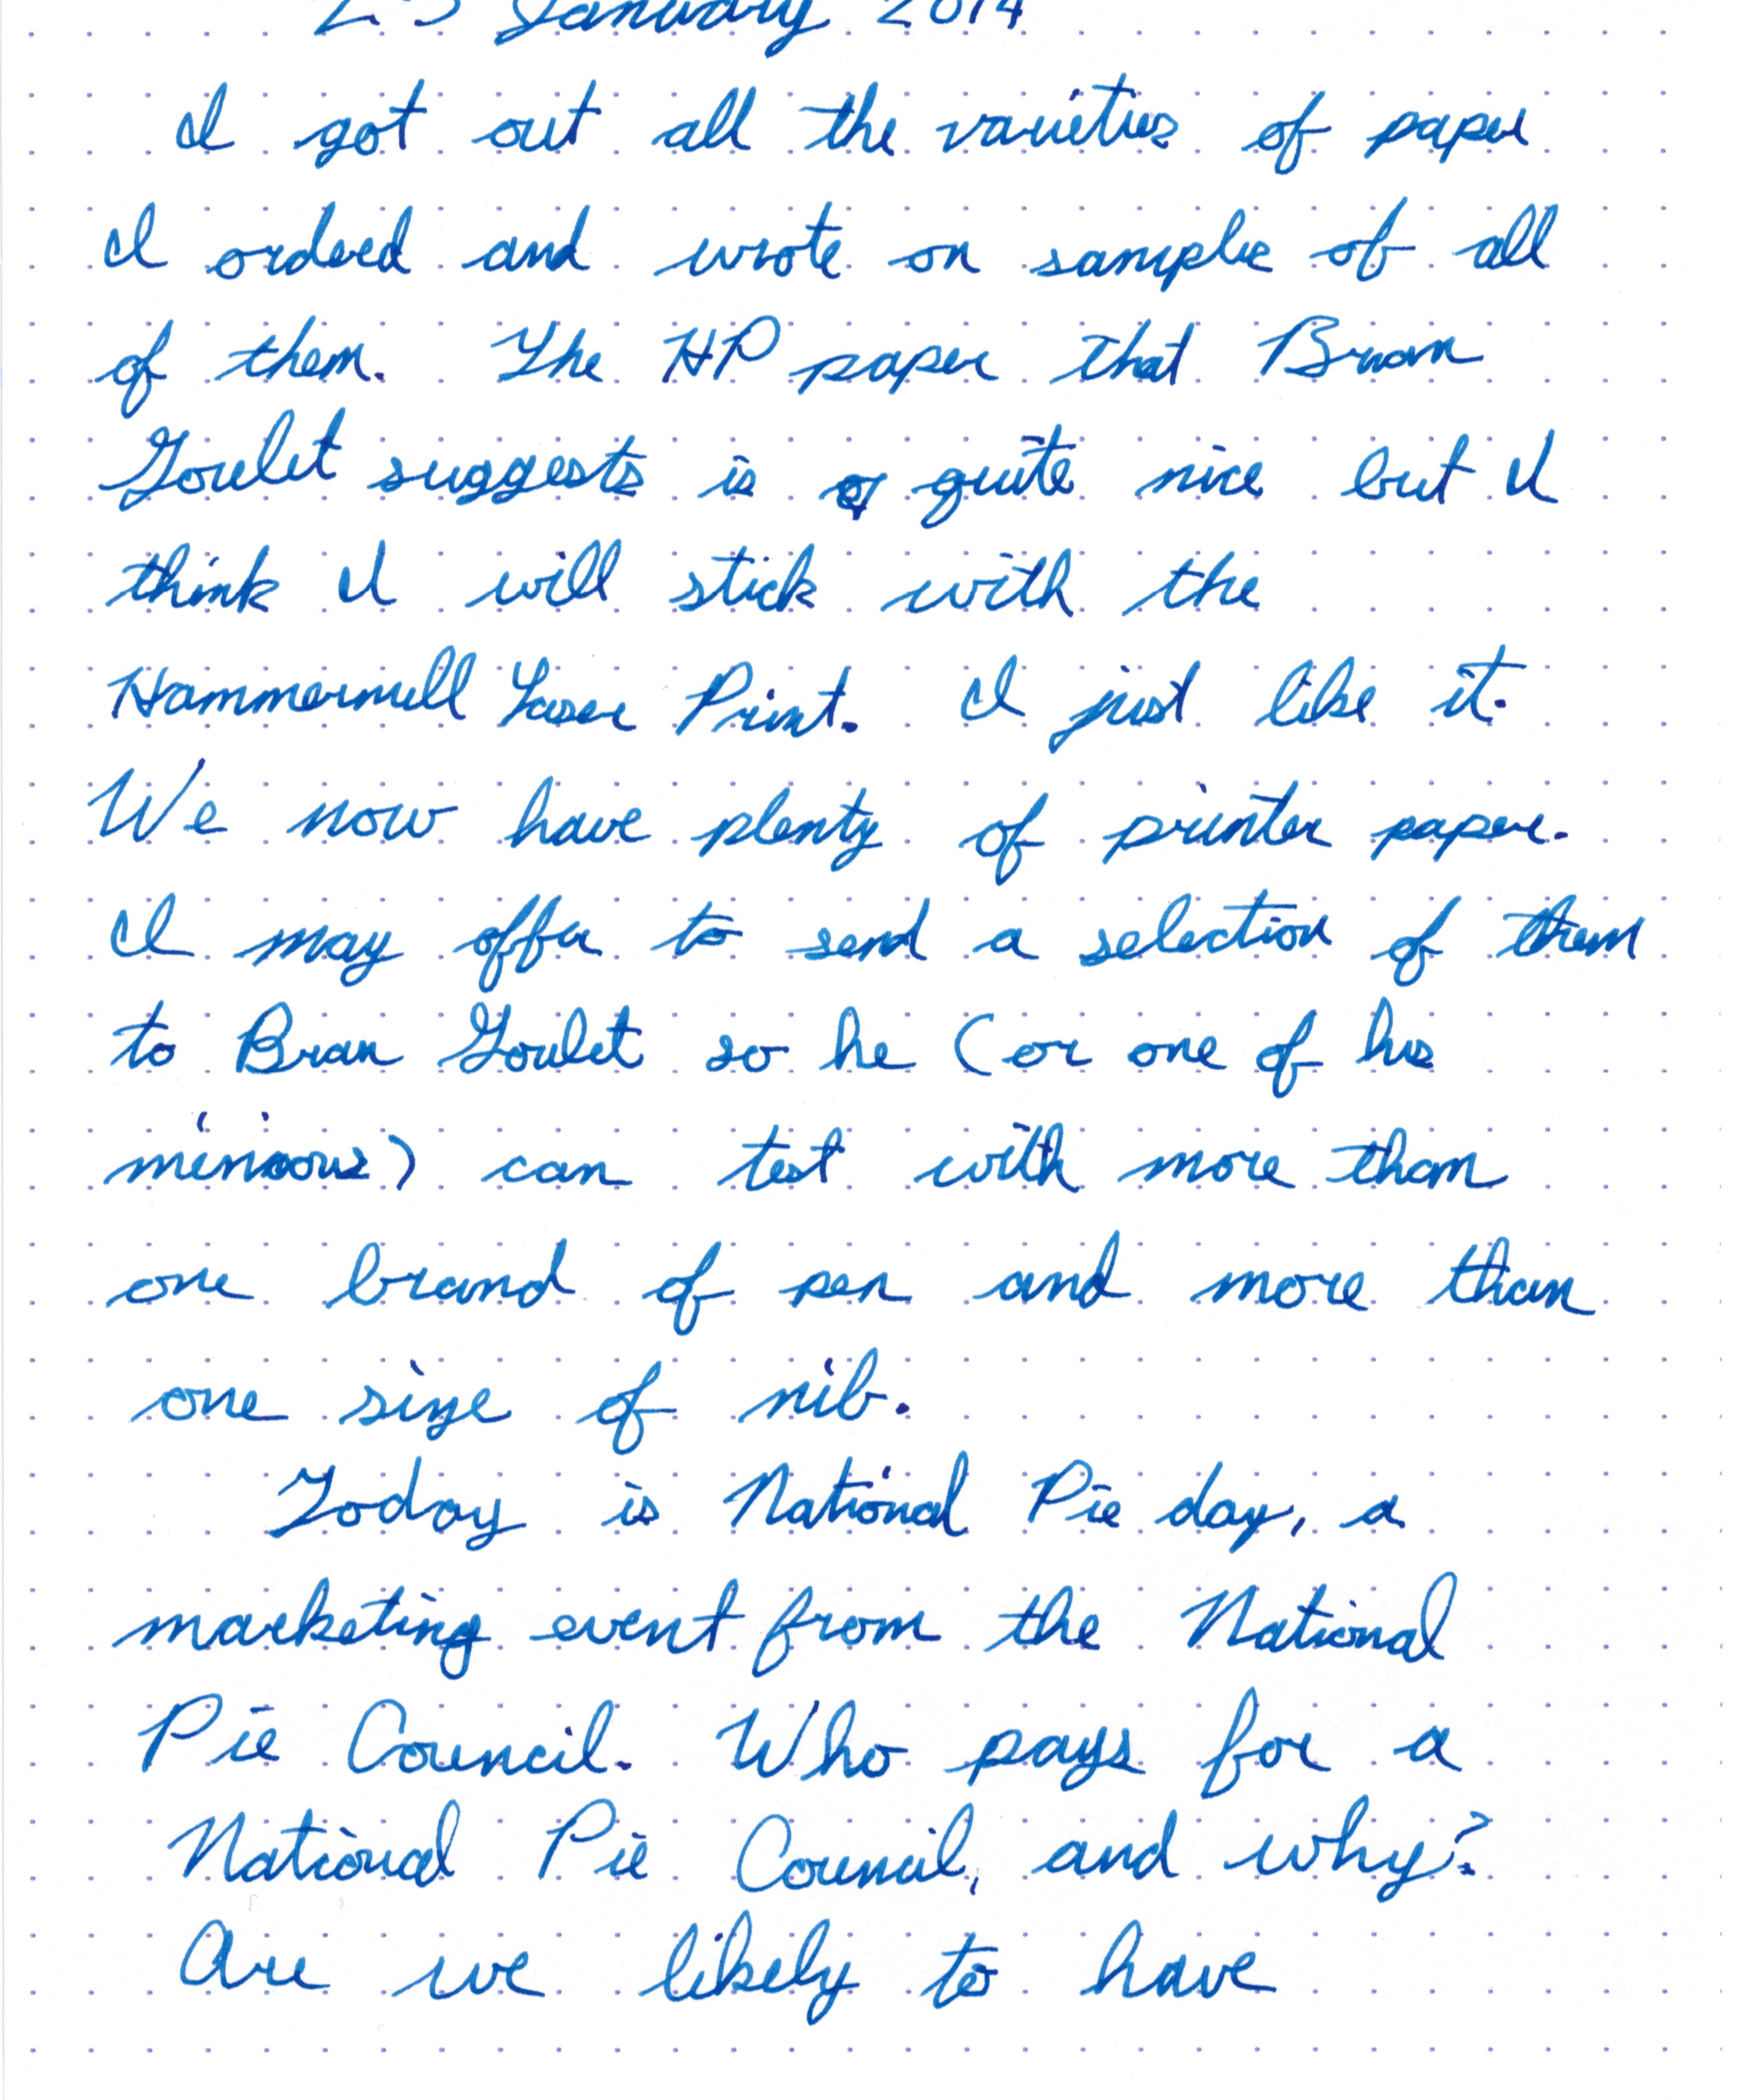 23 January 2014
I got out all the varieties of paper
I ordered and wrote on sample of all
of them. The HP paper that Brian
Goulet suggests is quite nice but I
think I will stick with the
Hammermill Laser Print. I just like it.
We now have plenty of printer paper.
I may offer to send a selection of them
to Brian Goulet so he (or one of his
minions) can test with more than
one brand of pen and more than
one size of nib.
Today is National Pie day, a
marketing event from the National
Pie Council. Who pays for a
National Pie Council, and why?
Are we likely to have